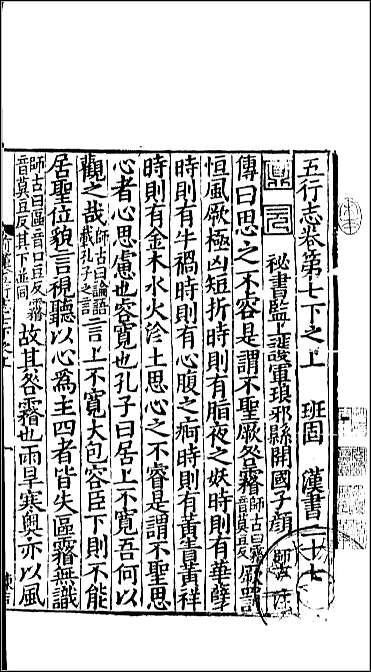 五行志卷第七下之上　班固　漢書二十七
秘書監上護軍琅邪縣開國子顏師古注
傳曰思之不容是謂不聖厥咎霧師古曰霧音莫豆反厥罰
恒風厥極凶短折時則有脂夜之妖時則有華孽
時則有牛禍時則有心腹之痾時則有黃眚黃祥
時則有金木水火沴土思心之不睿是謂不聖思
心者心思慮也容寬也孔子曰居上不寬吾何以
觀之哉師古曰論語載孔子之言言上不寬大包容臣下則不能
居聖位貌言視聽以心為主四者皆失區霧無識
師古曰區音口豆反霧音莫豆反其下並同故其咎霧也雨旱寒奧亦以風